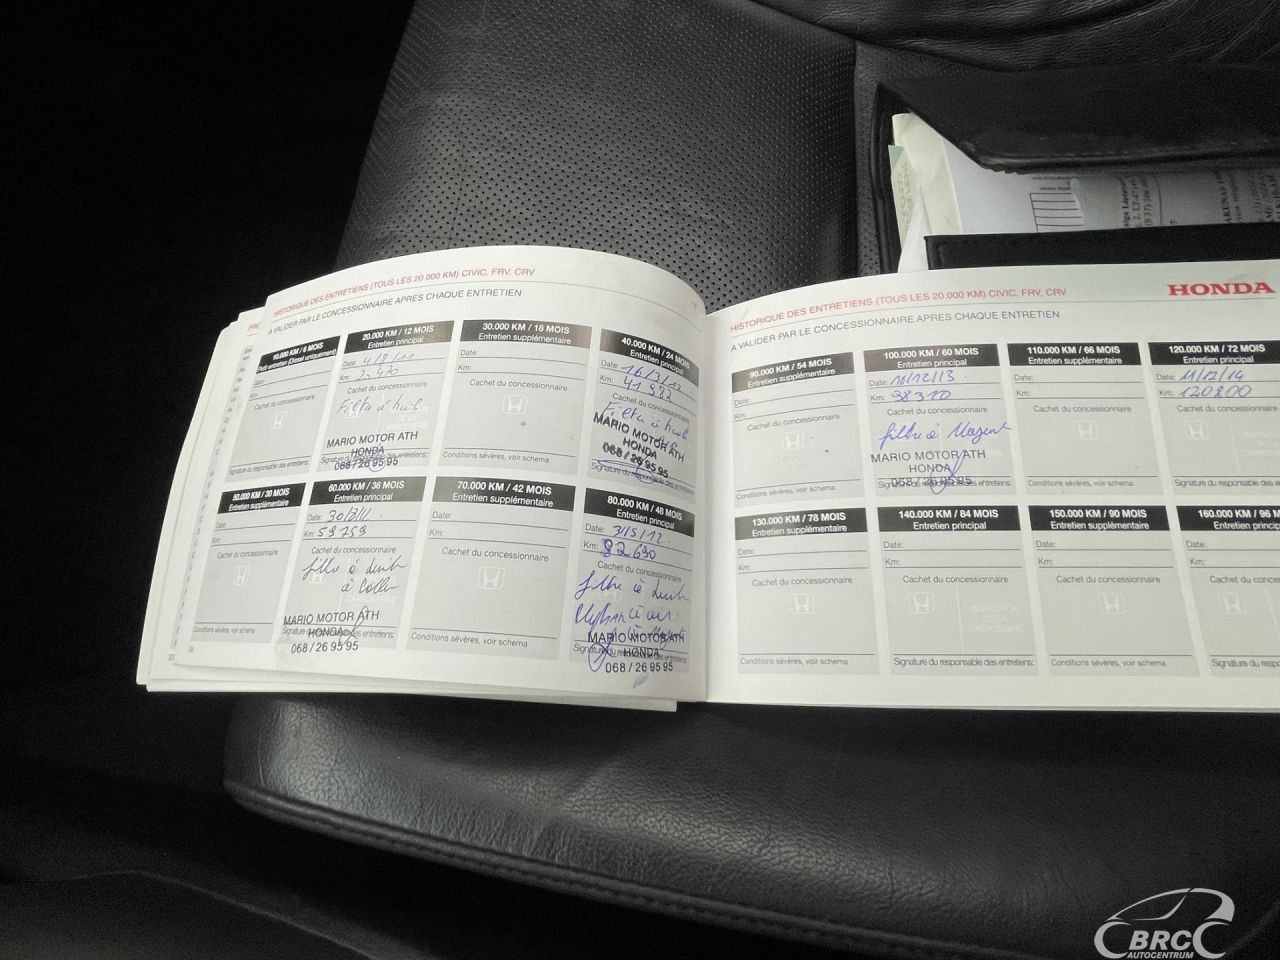 HISTORIQUE DES ENTRETIENS (TOUS LES 20 000 KM) CIVIC, FRV, CRV
A VALIDER PAR LE CONCESSIONNAIRE APRES CHAQUE ENTRETIEN
10.000 KM / 6 MOIS
Petit entretien (Diesel uniquement)
Date:
Km:
Cachet du concessionnaire
Signature du responsable des entretiens:
20.000 KM / 12 MOIS
Entretien principal
Date: 4/8/11
Km:
Cachet du concessionnaire
Filtre à huil
MARIO MOTOR ATH
HONDA
068 / 26 95 95
30.000 KM / 18 MOIS
Entretien supplémentaire
Date:
Km:
Cachet du concessionnaire
Conditions sévères, voir schema
40.000 KM / 24 MOIS
Entretien principal
Date: 16/3/12
Km: 41982
Cachet du concessionnaire
Filtre à huil
MARIO MOTOR ATH
HONDA
068 / 26 95 95
Signature du responsable des entretiens:
50.000 KM / 30 MOIS
Entretien supplémentaire
Date:
Km:
Cachet du concessionnaire
Conditions sévères, voir schema
60.000 KM / 36 MOIS
Entretien principal
Date:
Km: 59759
Cachet du concessionnaire
filtre à
MARIO MOTOR ATH
Signature du responsable des entretiens:
HONDA
068 / 26 95 95
70.000 KM / 42 MOIS
Entretien supplémentaire
Date:
Km:
Cachet du concessionnaire
Conditions sévères, voir schema
80.000 KM / 48 MOIS
Entretien principal
Date:
Km: 82690
Cachet du concessionnaire
filtre à
MARIO MOTOR ATH
Signature du responsable des entretiens:
HONDA
068 / 26 95 95
34
33
HISTORIQUE DES ENTRETIENS (TOUS LES 20.000 KM) CIVIC, FRV, CRV
HONDA
A VALIDER PAR LE CONCESSIONNAIRE APRES CHAQUE ENTRETIEN
90.000 KM / 54 MOIS
Entretien supplémentaire
Date:
Km:
Cachet du concessionnaire
Conditions sévères, voir schema
100.000 KM / 60 MOIS
Entretien principal
Date: 10/12/13
Km: 98310
Cachet du concessionnaire
filtre à Mazout
MARIO MOTOR ATH
HONDA
068 / 26 95 95
Signature du responsable des entretiens:
110.000 KM / 66 MOIS
Entretien supplémentaire
Date:
Km:
Cachet du concessionnaire
Conditions sévères, voir schema
120.000 KM / 72 MOIS
Entretien principal
Date: 11/12/14
Km: 120800
Cachet du concessionnaire
Signature du responsable
130.000 KM / 78 MOIS
Entretien supplémentaire
Date:
Km:
Cachet du concessionnaire
Conditions sévères, voir schema
140.000 KM / 84 MOIS
Entretien principal
Date:
Km:
Cachet du concessionnaire
Signature du responsable des entretiens:
150.000 KM / 90 MOIS
Entretien supplémentaire
Date:
Km:
Cachet du concessionnaire
Conditions sévères, voir schema
160.000 KM / 96 M
Entretien princip
Date:
Km:
Cachet du conces
Signature du responsable
BRC
AUTOCENTRUM